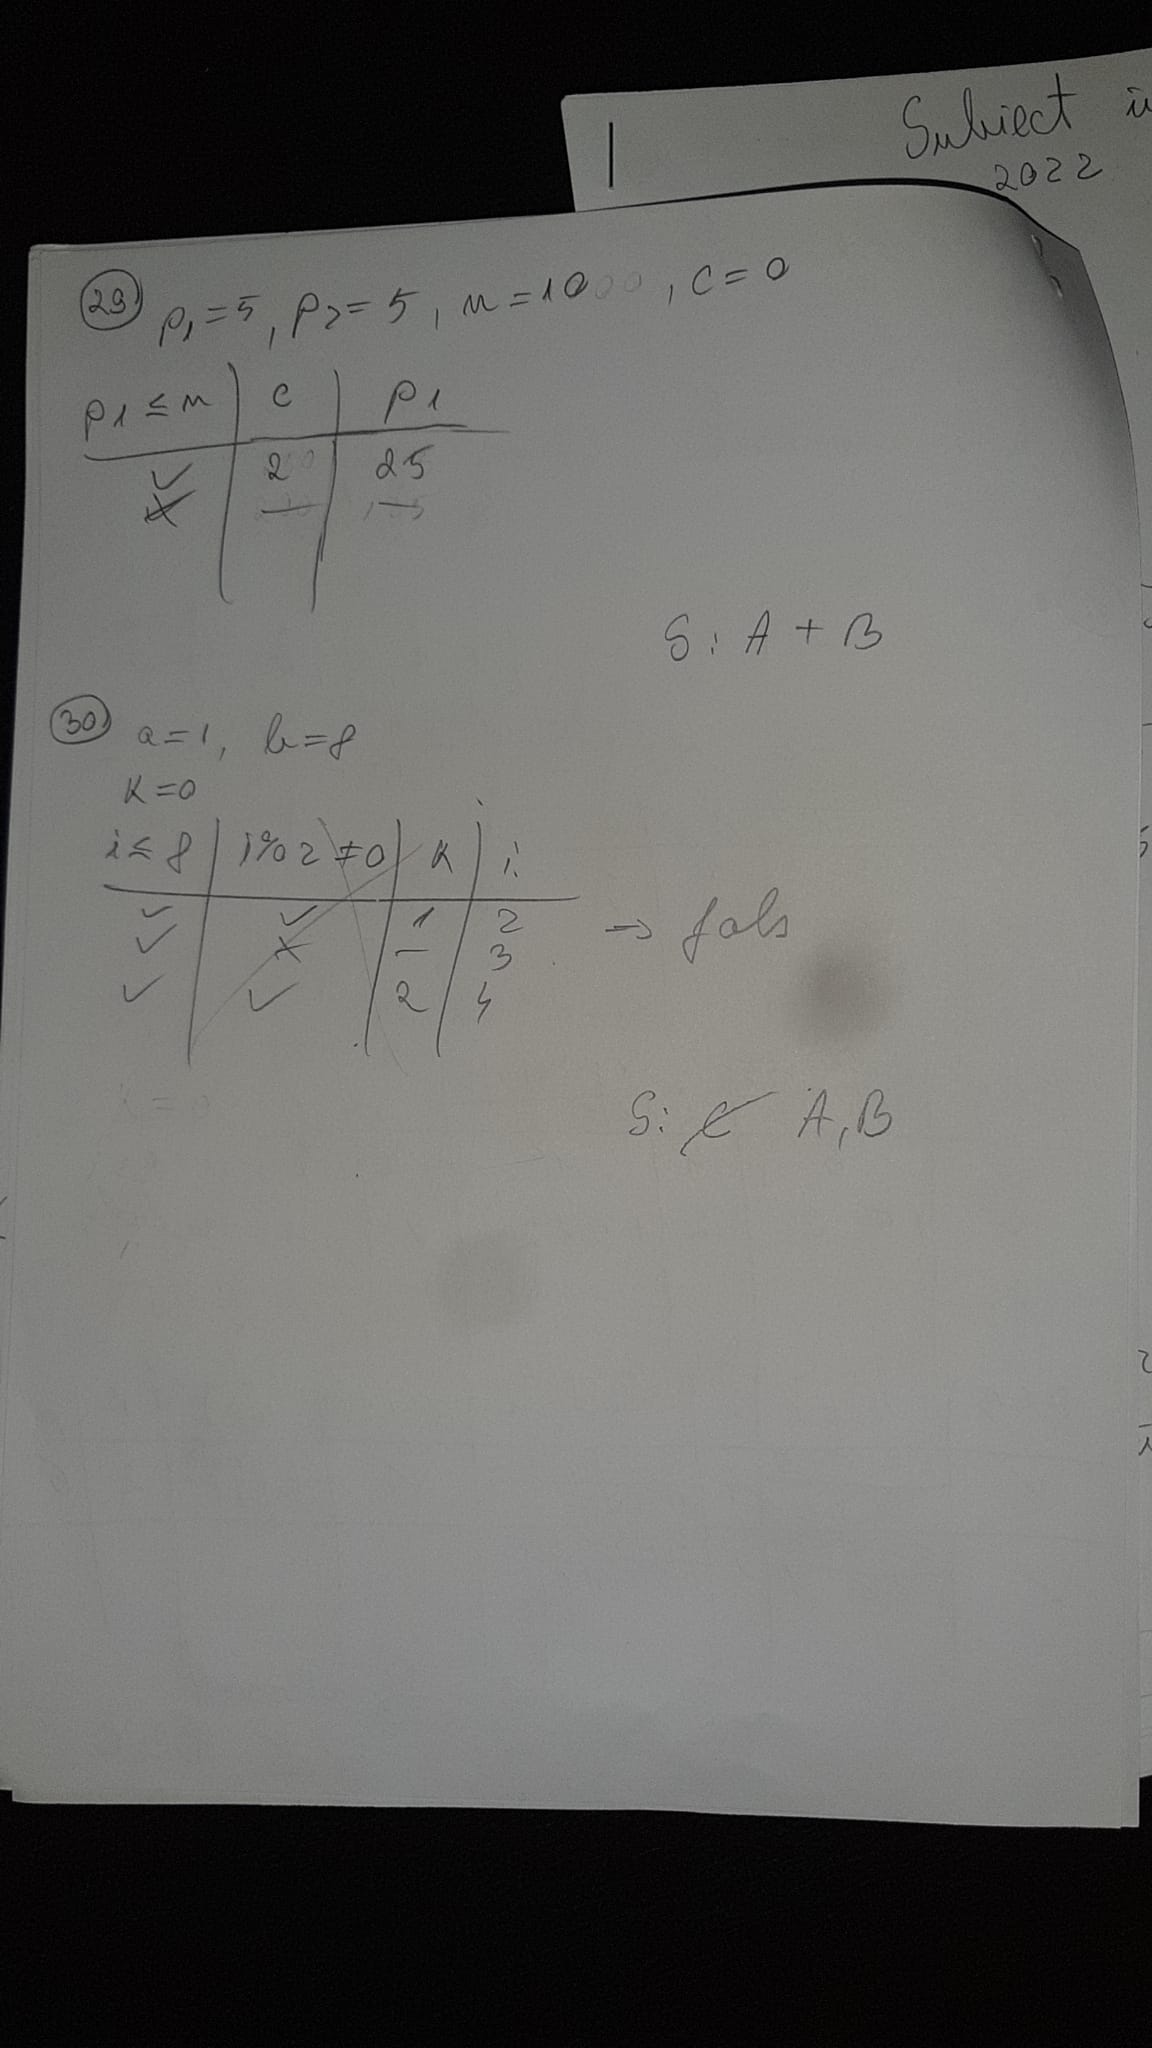 Subiect
2022
29 p1=5, p2=5, n=10, c=0
p1≤n | c | p1
✓ | 2 | 25
✗ | — | —
S: A + B
30 a=1, b=8
K=0
i≤8 | i%2≠0 | K | i
✓ | ✓ | 1 | 2
✓ | ✗ | — | 3
→ fals
✓ | ✓ | 2 | 4
S: C A, B